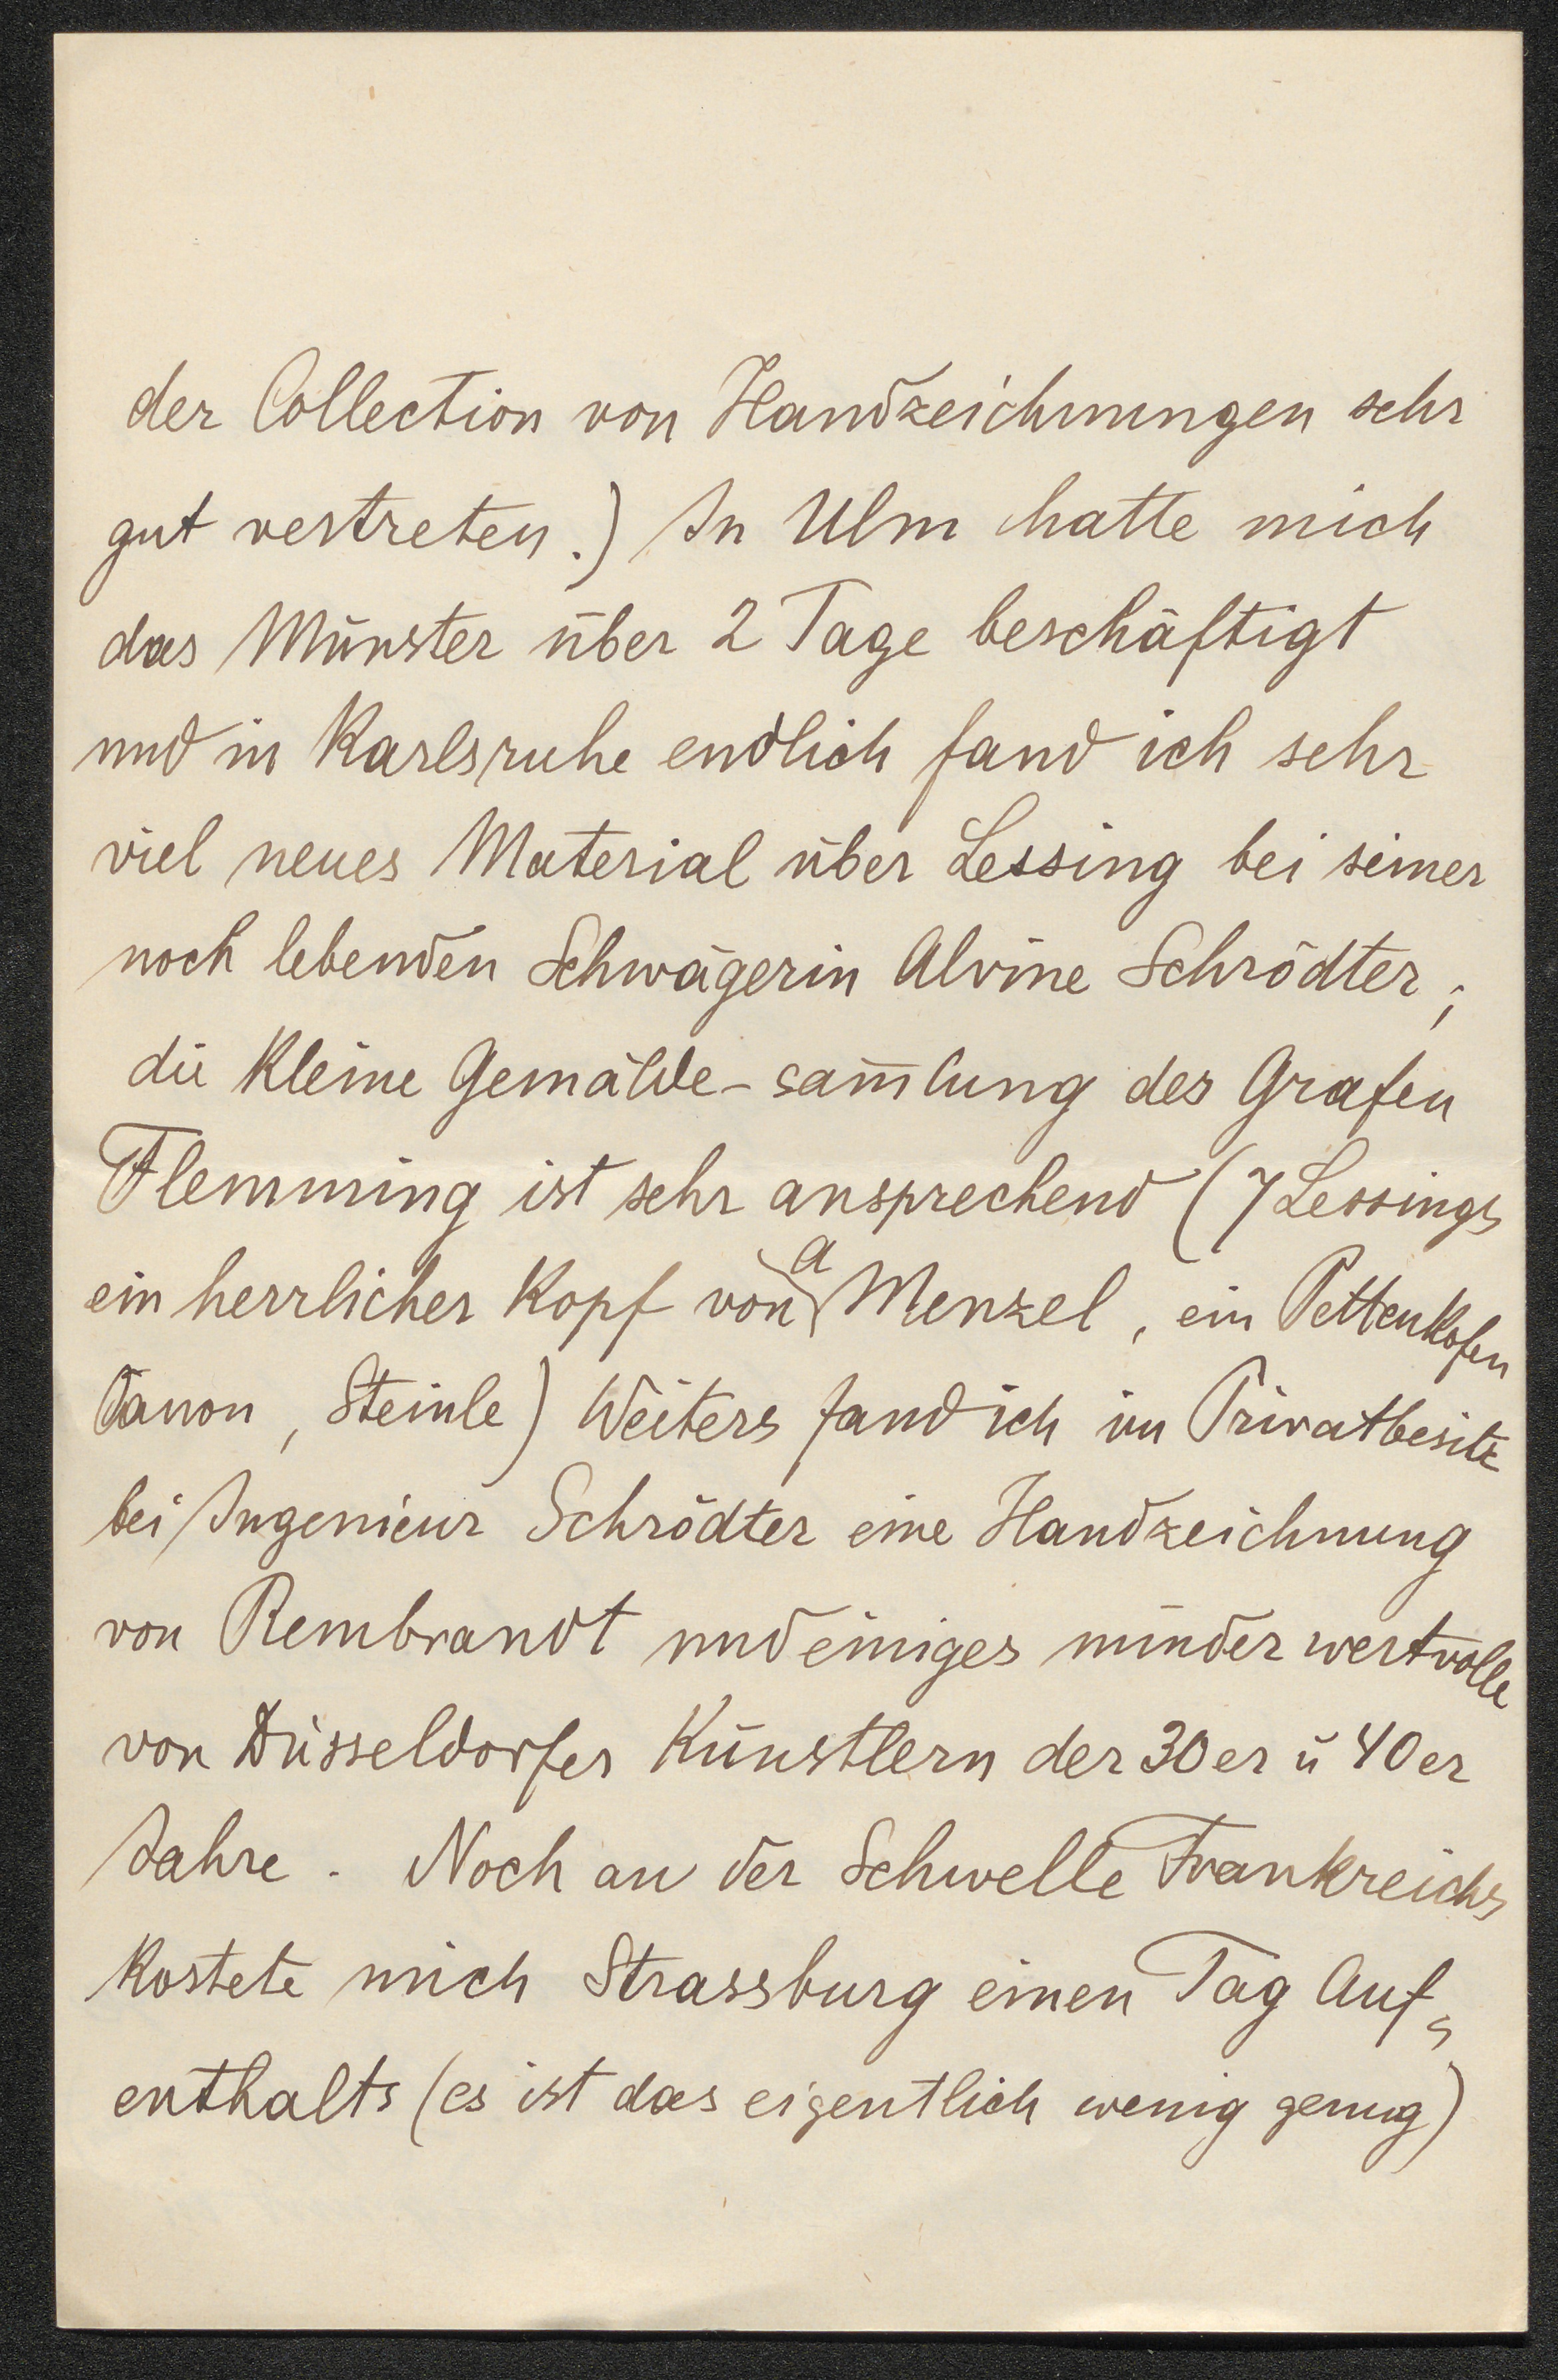 der Collection von Handzeichnungen sehr
gut vertreten.) In Ulm hatte mich
das Münster über 2 Tage beschäftigt
und in Karlsruhe endlich fand ich sehr
viel neues Material über Lessing bei seiner
noch lebenden Schwägerin Alvine Schrödter;
die kleine Gemälde-sam̄lung des Grafen
Flemming ist sehr ansprechend (7 Lessings
ein herrlicher Kopf von A Menzel, ein Pettenkofen
Canon, Steinle) Weiters fand ich im Privatbesitz
bei Ingenieur Schrödter eine Handzeichnung
von Rembrandt und einiges minder wertvolle
von Düsseldorfer Künstlern der 30er ū 40er
Jahre. Noch an der Schwelle Frankreichs
kostete mich Strassburg einen Tag Auf=
enthalts (es ist das eigentlich wenig genug)